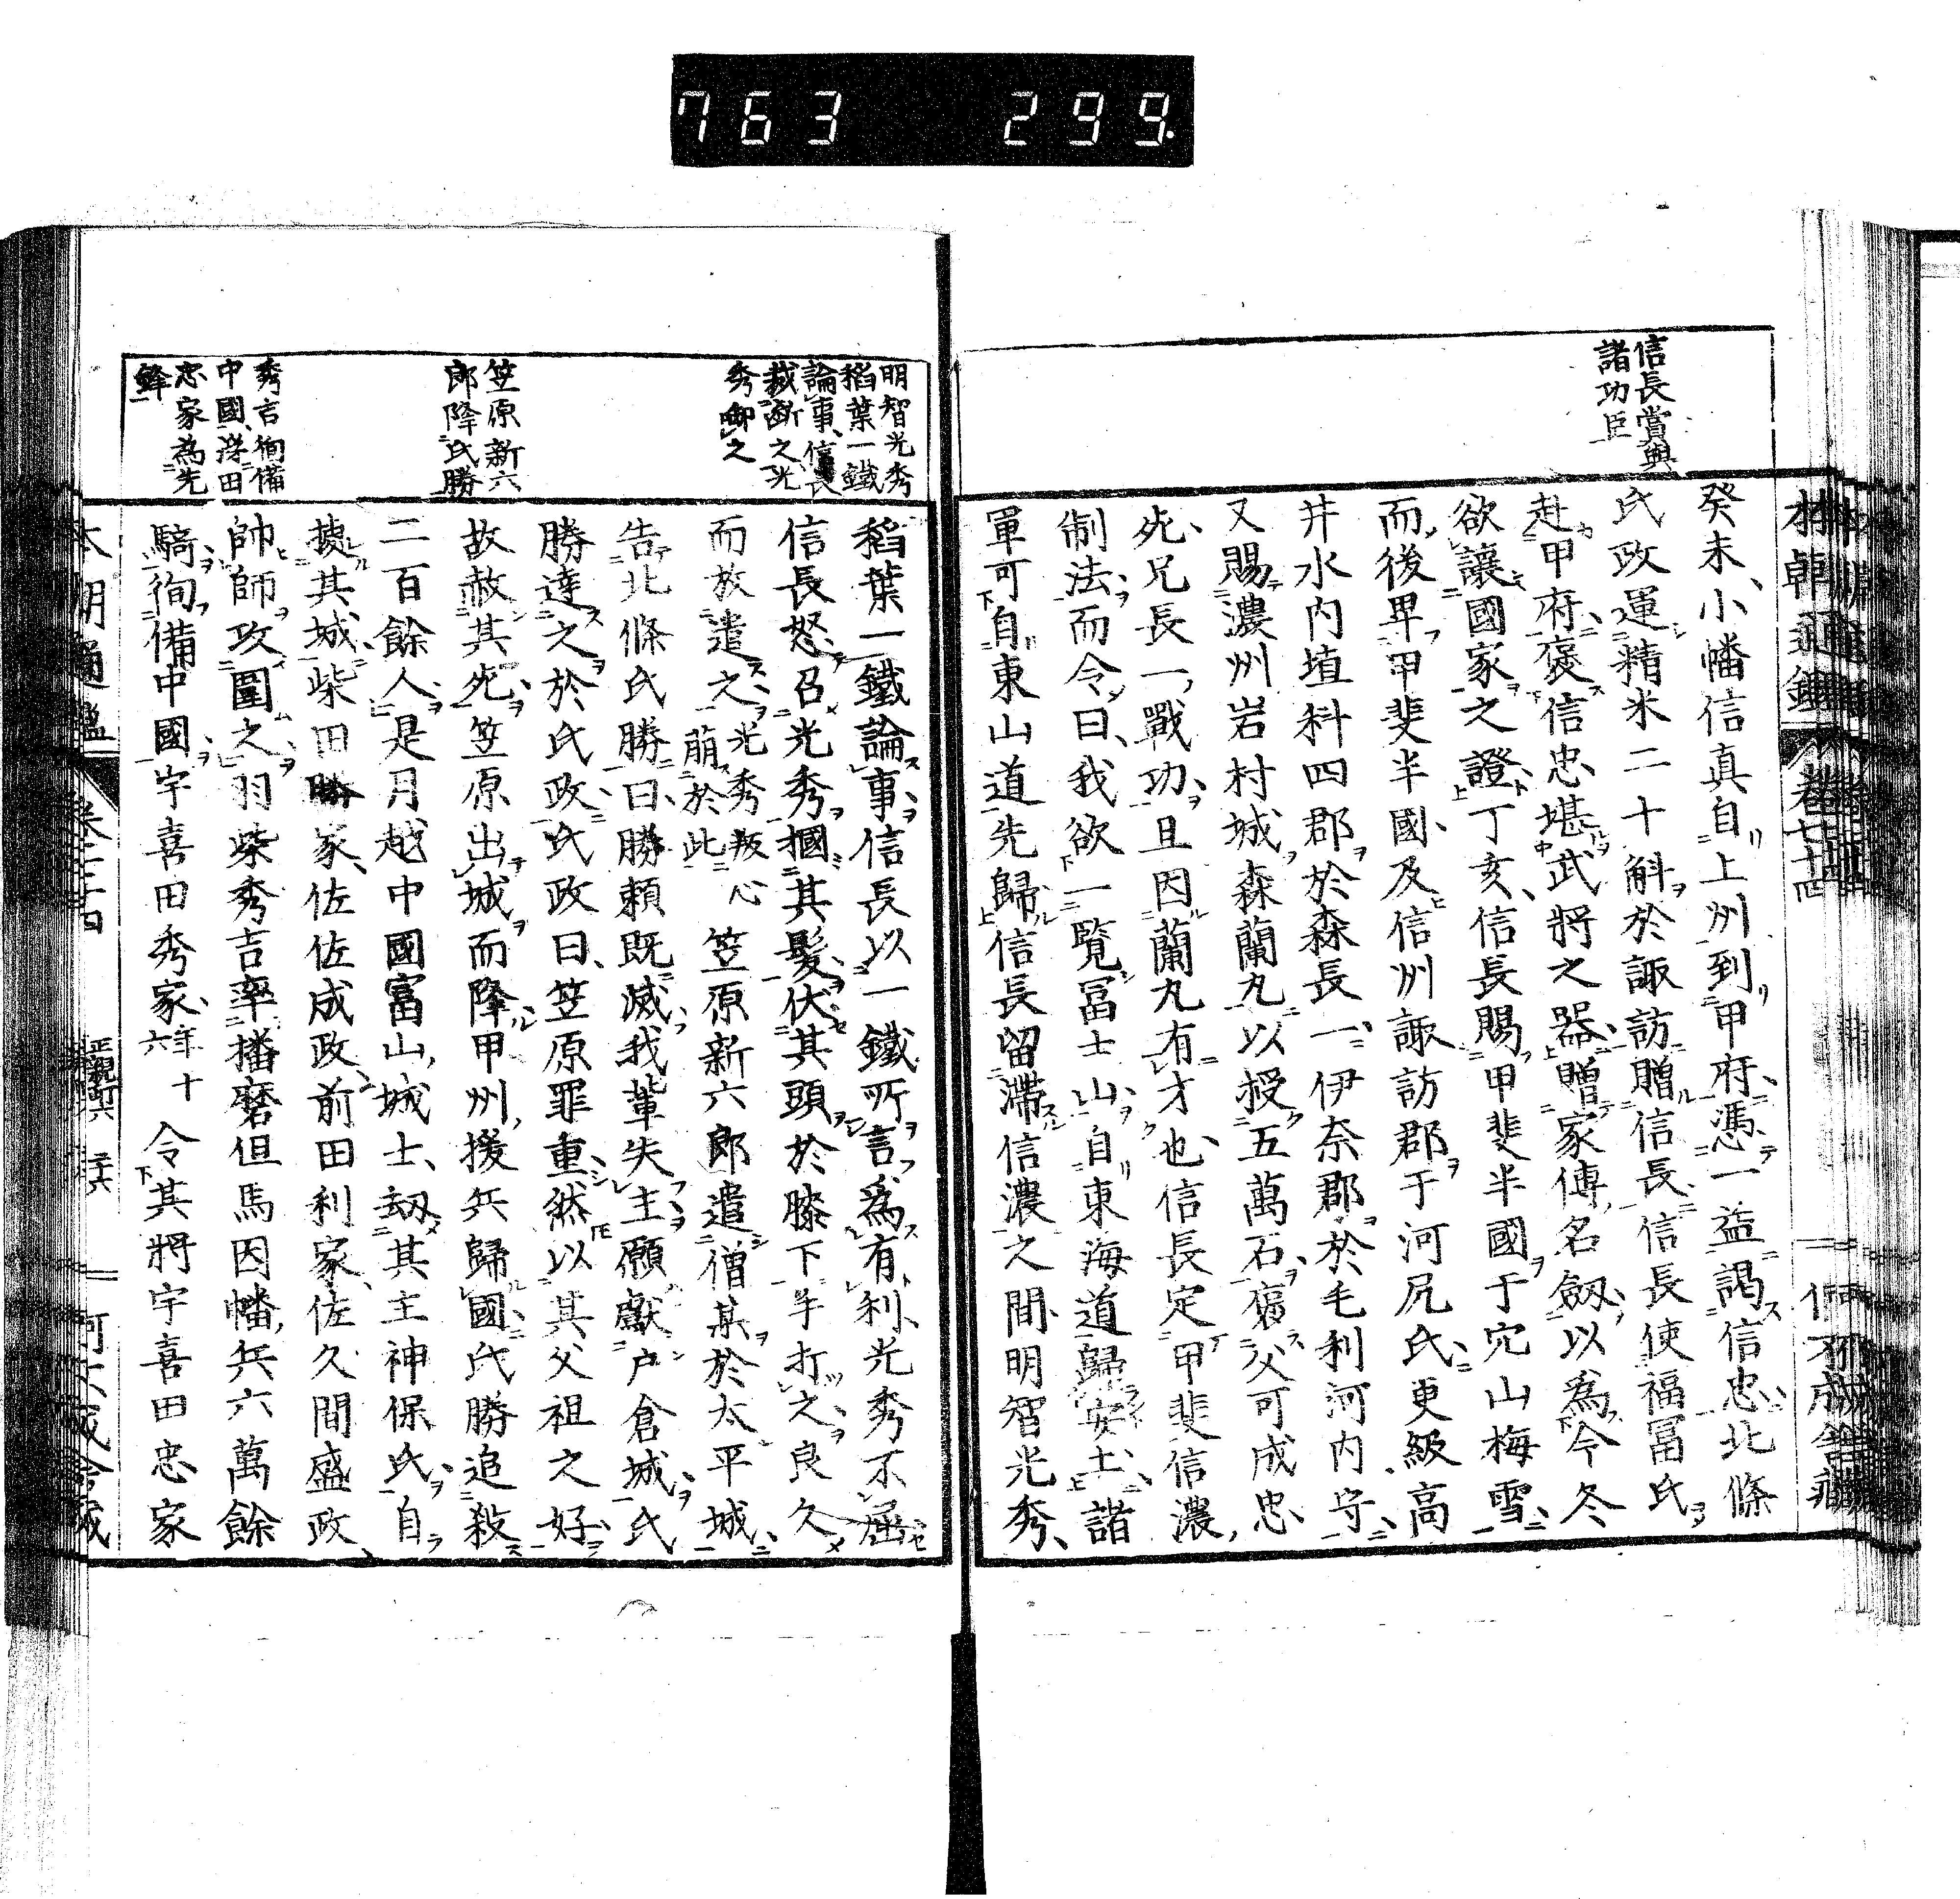 763 299
信長賞與
諸功臣
癸未、小幡信真自上州到甲府、憑一益謁信忠、北條
氏政運精米二十斛於諏訪贈信長、信長使福冨氏
赴甲府、褒信忠、堪武將之器、贈家傳名劔、以爲今冬
欲讓國家之證、丁亥、信長賜甲斐半國于穴山梅雪、
而後畀甲斐半國、及信州諏訪郡于河尻氏、更級高
井水内埴科四郡於森長一、伊奈郡於毛利河内守、
又賜濃州岩村城森蘭丸、以授五萬石、褒父可成忠
死、兄長一戰功、且因蘭丸有才也、信長定甲斐信濃、
制法、而令曰、我欲一覧冨士山、自東海道歸安土、諸
軍可自東山道先歸、信長留滯信濃之間、明智光秀、
明智光秀
稻葉一鐵
論事、信長
裁斷之光
秀啣之
笠原新六
郎降氏勝
秀吉徇備
中國、浮田
忠家為先
鋒
稻葉一鐵論事、信長以一鐵所言爲有利、光秀不屈、
信長怒、召光秀摑其髮、伏其頭於膝下、手打之良久
而放遣之、光秀叛心萠於此、笠原新六郎遣僧某於太平城、
告北條氏勝曰、勝賴既滅、我輩失主、願獻戸倉城、氏
勝達之於氏政、氏政曰、笠原罪重、然以其父祖之好、
故赦其死、笠原出城而降、甲州援兵歸國、氏勝追殺
二百餘人、是月越中國富山城士、劫其主神保氏、自
據其城、柴田勝家、佐佐成政、前田利家、佐久間盛政、
帥師攻圍之、羽柴秀吉率播磨但馬因幡兵六萬餘
騎、徇備中國、宇喜田秀家、年十六令其將宇喜田忠家